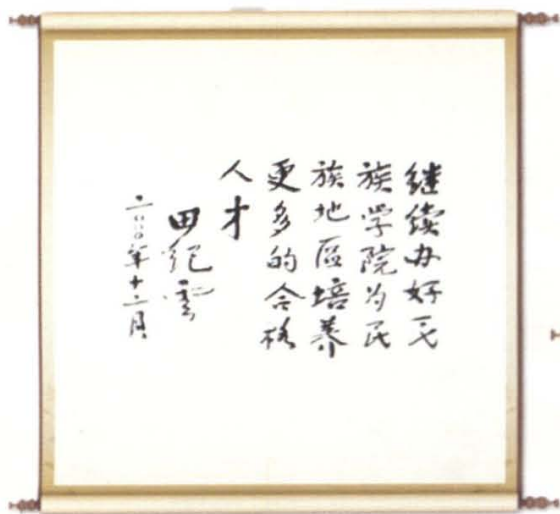 继续办好民
族学院为民
族地区培养
更多的合格
人才
田纪云
二〇〇〇年十二月